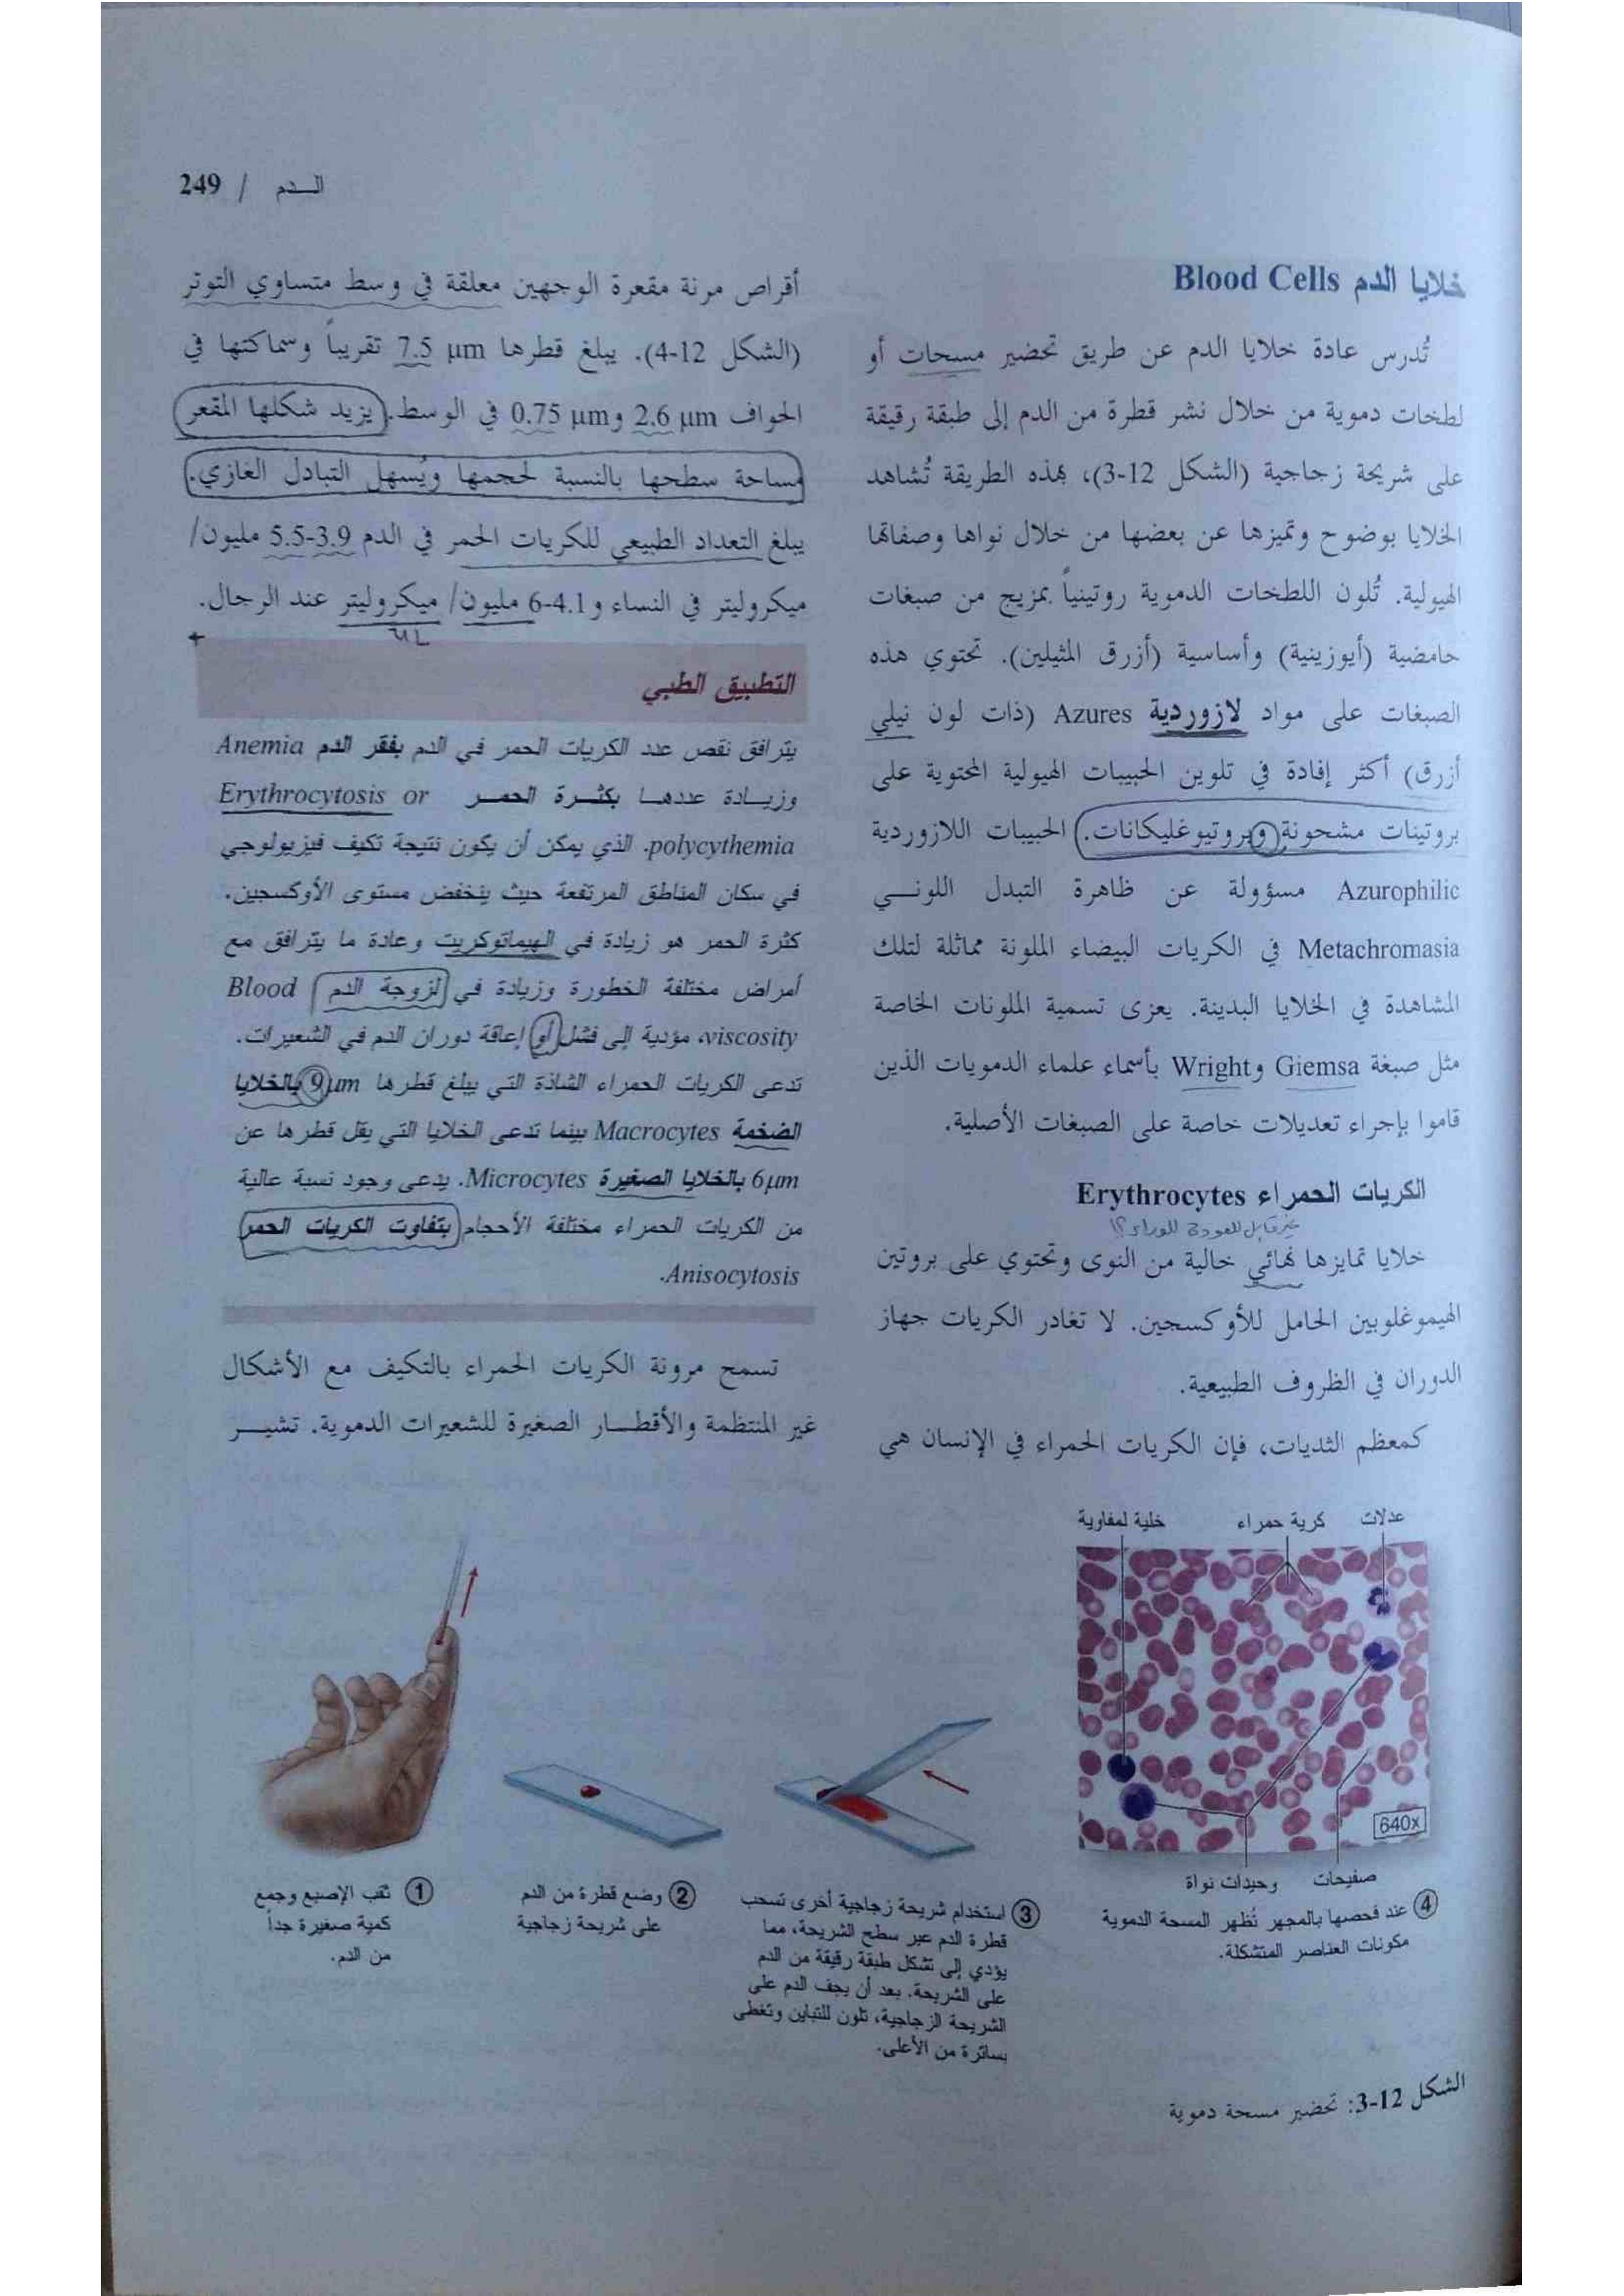 الـدم / 249
خلايا الدم Blood Cells
تُدرس عادة خلايا الدم عن طريق تحضير مسحات أو
لطخات دموية من خلال نشر قطرة من الدم إلى طبقة رقيقة
على شريحة زجاجية (الشكل 12-3)، بهذه الطريقة تُشاهد
الخلايا بوضوح وتميزها عن بعضها من خلال نواها وصفاتها
الهيولية. تُلون اللطخات الدموية روتينياً بمزيج من صبغات
حامضية (أيوزينية) وأساسية (أزرق المثيلين). تحتوي هذه
الصبغات على مواد لازوردية Azures (ذات لون نيلي
أزرق) أكثر إفادة في تلوين الحبيبات الهيولية المحتوية على
بروتينات مشحونة وبروتيوغليكانات. الحبيبات اللازوردية
Azurophilic مسؤولة عن ظاهرة التبدل اللونـــي
Metachromasia في الكريات البيضاء الملونة مماثلة لتلك
المشاهدة في الخلايا البدينة. يعزى تسمية الملونات الخاصة
مثل صبغة Giemsa وWright بأسماء علماء الدمويات الذين
قاموا بإجراء تعديلات خاصة على الصبغات الأصلية.
الكريات الحمراء Erythrocytes
غير قابل للعودة للوراء؟!
خلايا تمايزها نهائي خالية من النوى وتحتوي على بروتين
الهيموغلوبين الحامل للأوكسجين. لا تغادر الكريات جهاز
الدوران في الظروف الطبيعية.
كمعظم الثديات، فإن الكريات الحمراء في الإنسان هي
أقراص مرنة مقعرة الوجهين معلقة في وسط متساوي التوتر
(الشكل 12-4). يبلغ قطرها 7.5 µm تقريباً وسماكتها في
الحواف 2.6 µm و0.75 µm في الوسط. يزيد شكلها المقعر
مساحة سطحها بالنسبة لحجمها ويُسهل التبادل الغازي.
يبلغ التعداد الطبيعي للكريات الحمر في الدم 3.9-5.5 مليون/
ميكروليتر في النساء و4.1-6 مليون/ ميكروليتر عند الرجال.
µL
التطبيق الطبي
يترافق نقص عدد الكريات الحمر في الدم بفقر الدم Anemia
وزيــادة عددهــا بكثــرة الحمــر Erythrocytosis or
polycythemia. الذي يمكن أن يكون نتيجة تكيف فيزيولوجي
في سكان المناطق المرتفعة حيث ينخفض مستوى الأوكسجين.
كثرة الحمر هو زيادة في الهيماتوكريت وعادة ما يترافق مع
أمراض مختلفة الخطورة وزيادة في لزوجة الدم Blood
viscosity، مؤدية إلى فشل أو إعاقة دوران الدم في الشعيرات.
تدعى الكريات الحمراء الشاذة التي يبلغ قطرها 9µm بالخلايا
الضخمة Macrocytes بينما تدعى الخلايا التي يقل قطرها عن
6µm بالخلايا الصغيرة Microcytes. يدعى وجود نسبة عالية
من الكريات الحمراء مختلفة الأحجام بتفاوت الكريات الحمر
Anisocytosis.
تسمح مرونة الكريات الحمراء بالتكيف مع الأشكال
غير المنتظمة والأقطــار الصغيرة للشعيرات الدموية. تشيـــر
عدلات
كرية حمراء
خلية لمفاوية
640x
صفيحات
وحيدات نواة
① ثقب الإصبع وجمع
كمية صغيرة جداً
من الدم.
② وضع قطرة من الدم
على شريحة زجاجية
③ استخدام شريحة زجاجية أخرى تسحب
قطرة الدم عبر سطح الشريحة، مما
يؤدي إلى تشكل طبقة رقيقة من الدم
على الشريحة. بعد أن يجف الدم على
الشريحة الزجاجية، تلون للتباين وتغطى
بساترة من الأعلى.
④ عند فحصها بالمجهر تُظهر المسحة الدموية
مكونات العناصر المتشكلة.
الشكل 12-3: تحضير مسحة دموية